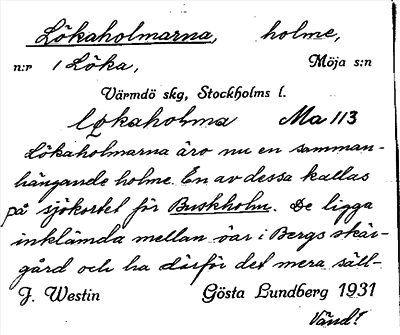 Lökaholmarna, holme,
n:r 1 Löka, Möja s:n
Värmdö skg, Stockholms l.
løkaholma Ma 113
Lökaholmarna äro nu en samman-
hängande holme. En av dessa kallas
på sjökortet för Buskholm. De ligga
inklämda mellan öar i Bergs skär-
gård och ha därför det mera säll-
J. Westin Gösta Lundberg 1931
Vänd!